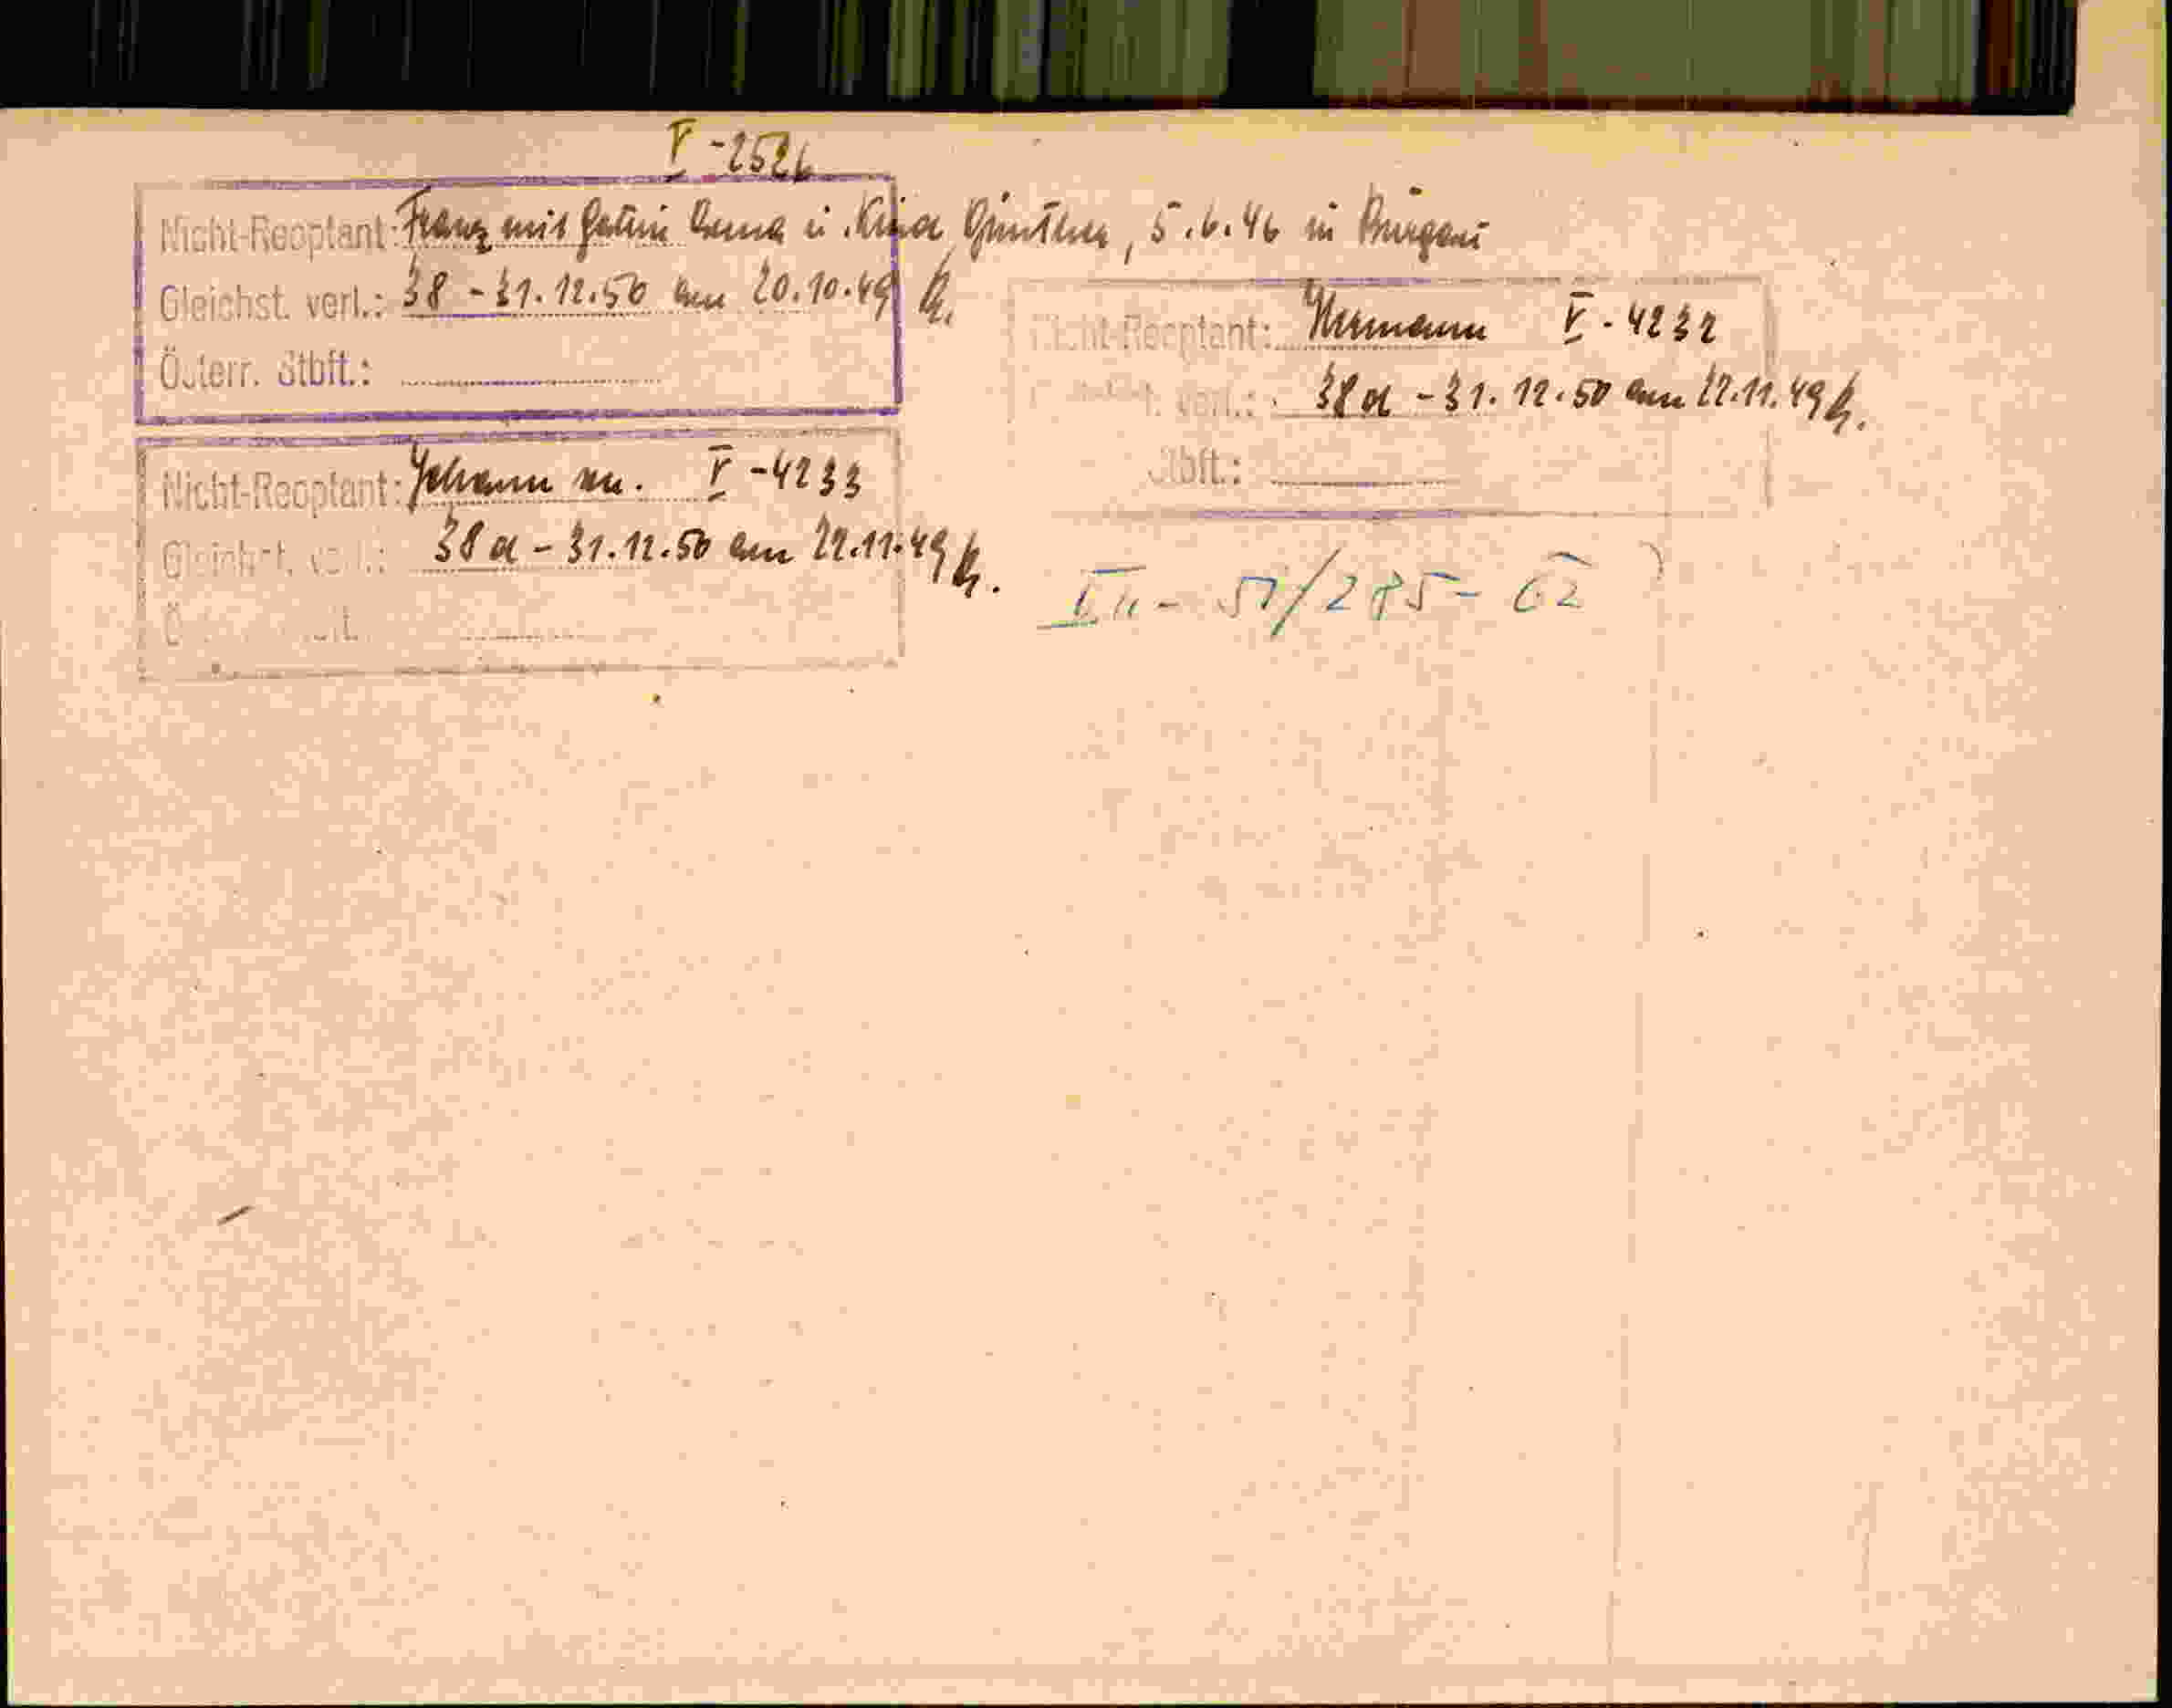 V - 2526
Nicht-Reoptant: Franz mit Gattin Anna u. Kind Günther, 5.6.46 in Burgau
Gleichst. verl.: 38 - 31.12.50 am 20.10.49
Österr. Stbft.:
Nicht-Reoptant: Hermann V - 4232
verl.: 38a - 31.12.50 am 22.11.49
Stbft.:
Nicht-Reoptant: Johann V - 4233
Gleichst. verl.: 38a - 31.12.50 am 22.11.49
57/285 - 62